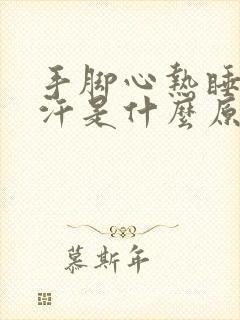 手脚心热睡
汗是什麼原
慕斯年